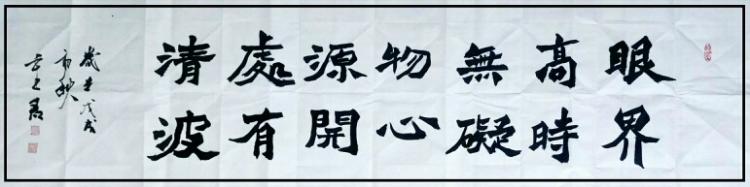 眼界
高時
無礙
物心
源開
處有
清波
歲在戊戌
秋